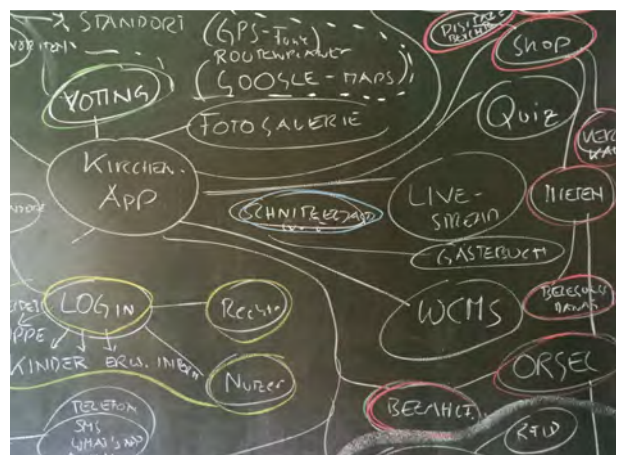 STANDORT
(GPS-Funk
ROUTENPLANER
GOOGLE-MAPS)
SHOP
VOTING
FOTOGALERIE
QUIZ
KIRCHEN-
APP
SCHNITZELJAGD
LIVE-
STREAM
MIETEN
GÄSTEBUCH
LOGIN
Rechte
WCMS
KINDER ERW.
Nutzer
ORGEL
BEZAHLT.
TELEFON
SMS
WHAT'S APP
RFID